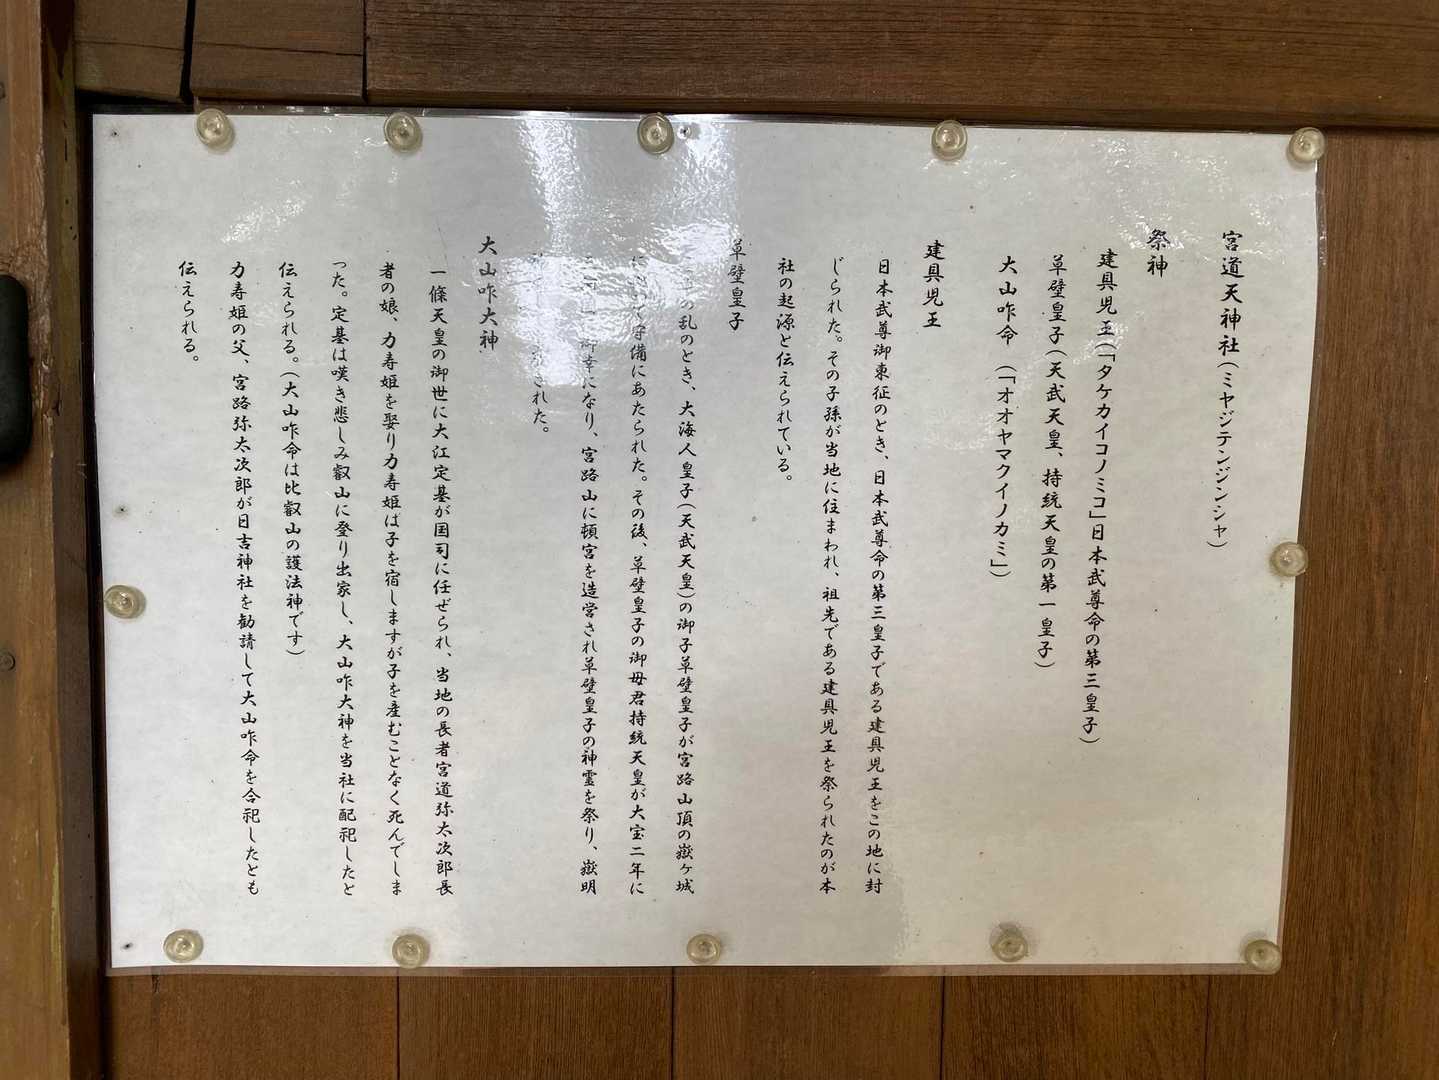 宮道天神社(ミヤジテンジンシャ)
祭神
建貝児王(「タケカイコノミコ」日本武尊命の第三皇子)
草壁皇子(天武天皇、持統天皇の第一皇子)
大山咋命 (「オオヤマクイノカミ」)
建貝児王
日本武尊御東征のとき、日本武尊命の第三皇子である建貝児王をこの地に封
じられた。その子孫が当地に住まわれ、祖先である建貝児王を祭られたのが本
社の起源と伝えられている。
草壁皇子
の乱のとき、大海人皇子(天武天皇)の御子草壁皇子が宮路山頂の嶽ヶ城
て守備にあたられた。その後、草壁皇子の御母君持統天皇が大宝二年に
御幸になり、宮路山に頓宮を造営され草壁皇子の神霊を祭り、嶽明
された。
大山咋大神
一條天皇の御世に大江定基が国司に任ぜられ、当地の長者宮道弥太次郎長
者の娘、力寿姫を娶り力寿姫は子を宿しますが子を産むことなく死んでしま
った。定基は嘆き悲しみ叡山に登り出家し、大山咋大神を当社に配祀したと
伝えられる。(大山咋命は比叡山の護法神です)
力寿姫の父、宮路弥太次郎が日吉神社を勧請して大山咋命を合祀したとも
伝えられる。